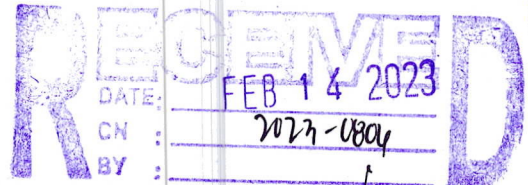 RECEIVED
DATE: FEB 14 2023
CN : 2023-0804
BY :